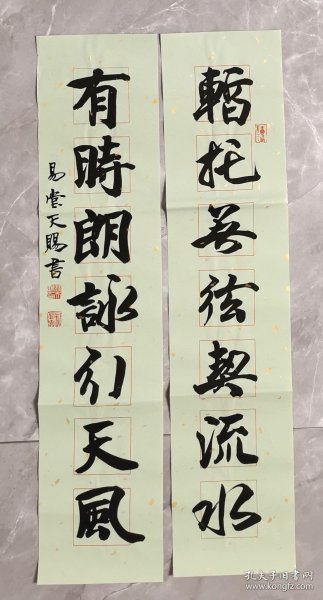 暫托無弦契流水
有時朗詠引天風
易堂天賜書
孔夫子旧书网